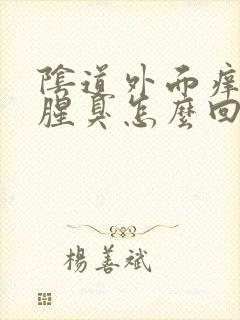 陰道外而痒
腥臭怎麼回
楊善斌